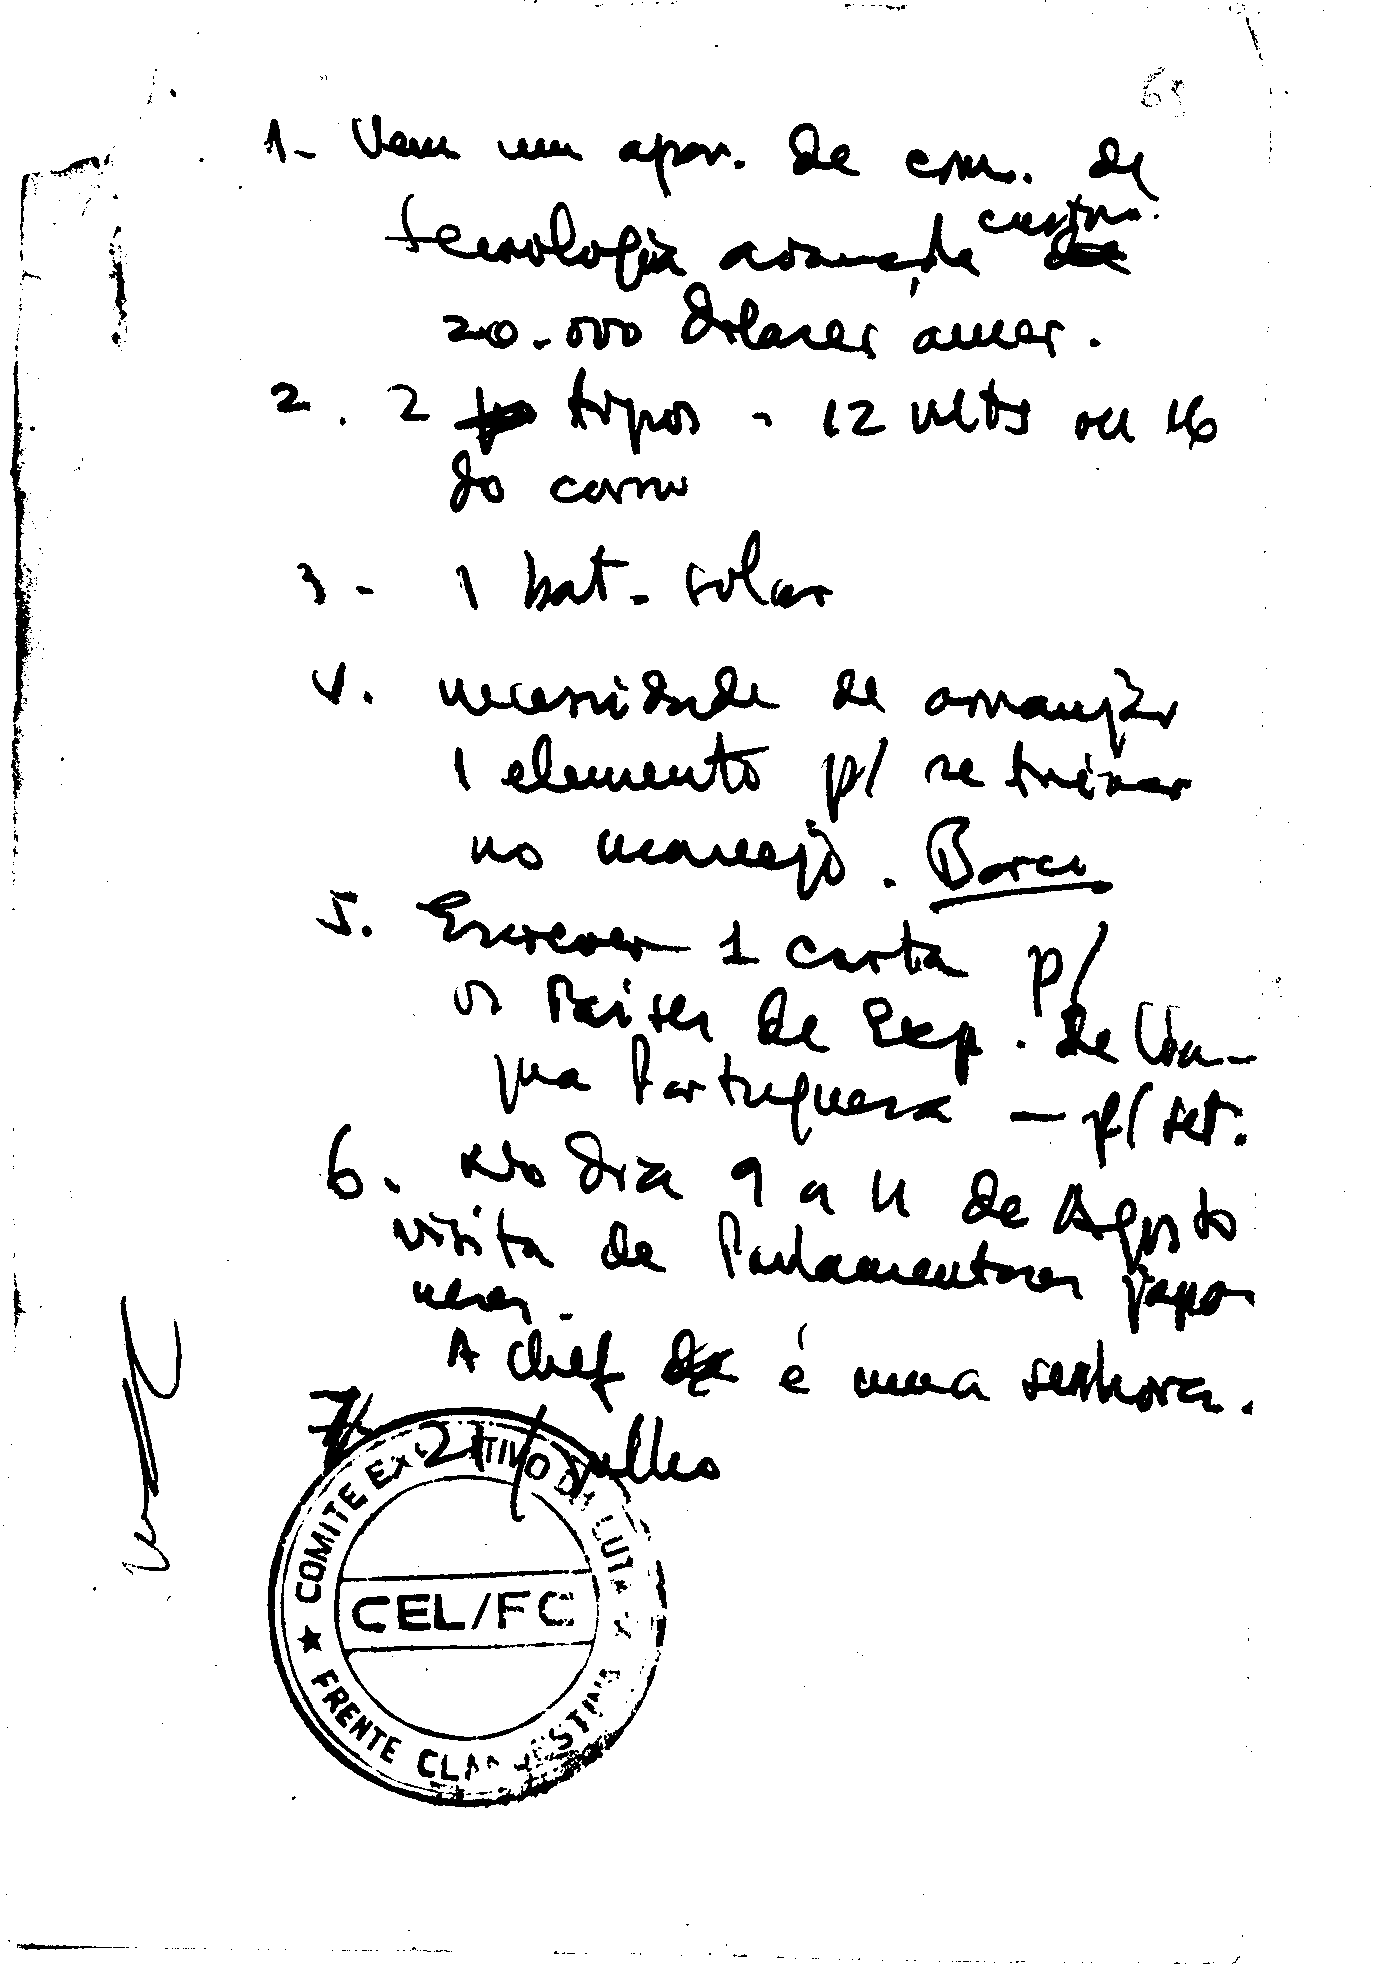 65
1- Vem um apar. de com. de
tecnologia avançada custou
20.000 dólares amer.
2. 2 tipos - 12 volts ou 16
do carro
3- 1 bat. solar
4. necessidade de arranjar
1 elemento p/ se treinar
no manejo.
5. Escrever 1 carta p/
os Países de Exp. de Lín-
gua Portuguesa — p/ set.
6. No dia 9 a 11 de Agosto
visita de Parlamentares japo
neses.
A chef é uma senhora.
21/julho
COMITE EXECUTIVO DA LUTA
CEL/FC
FRENTE CLANDESTINA